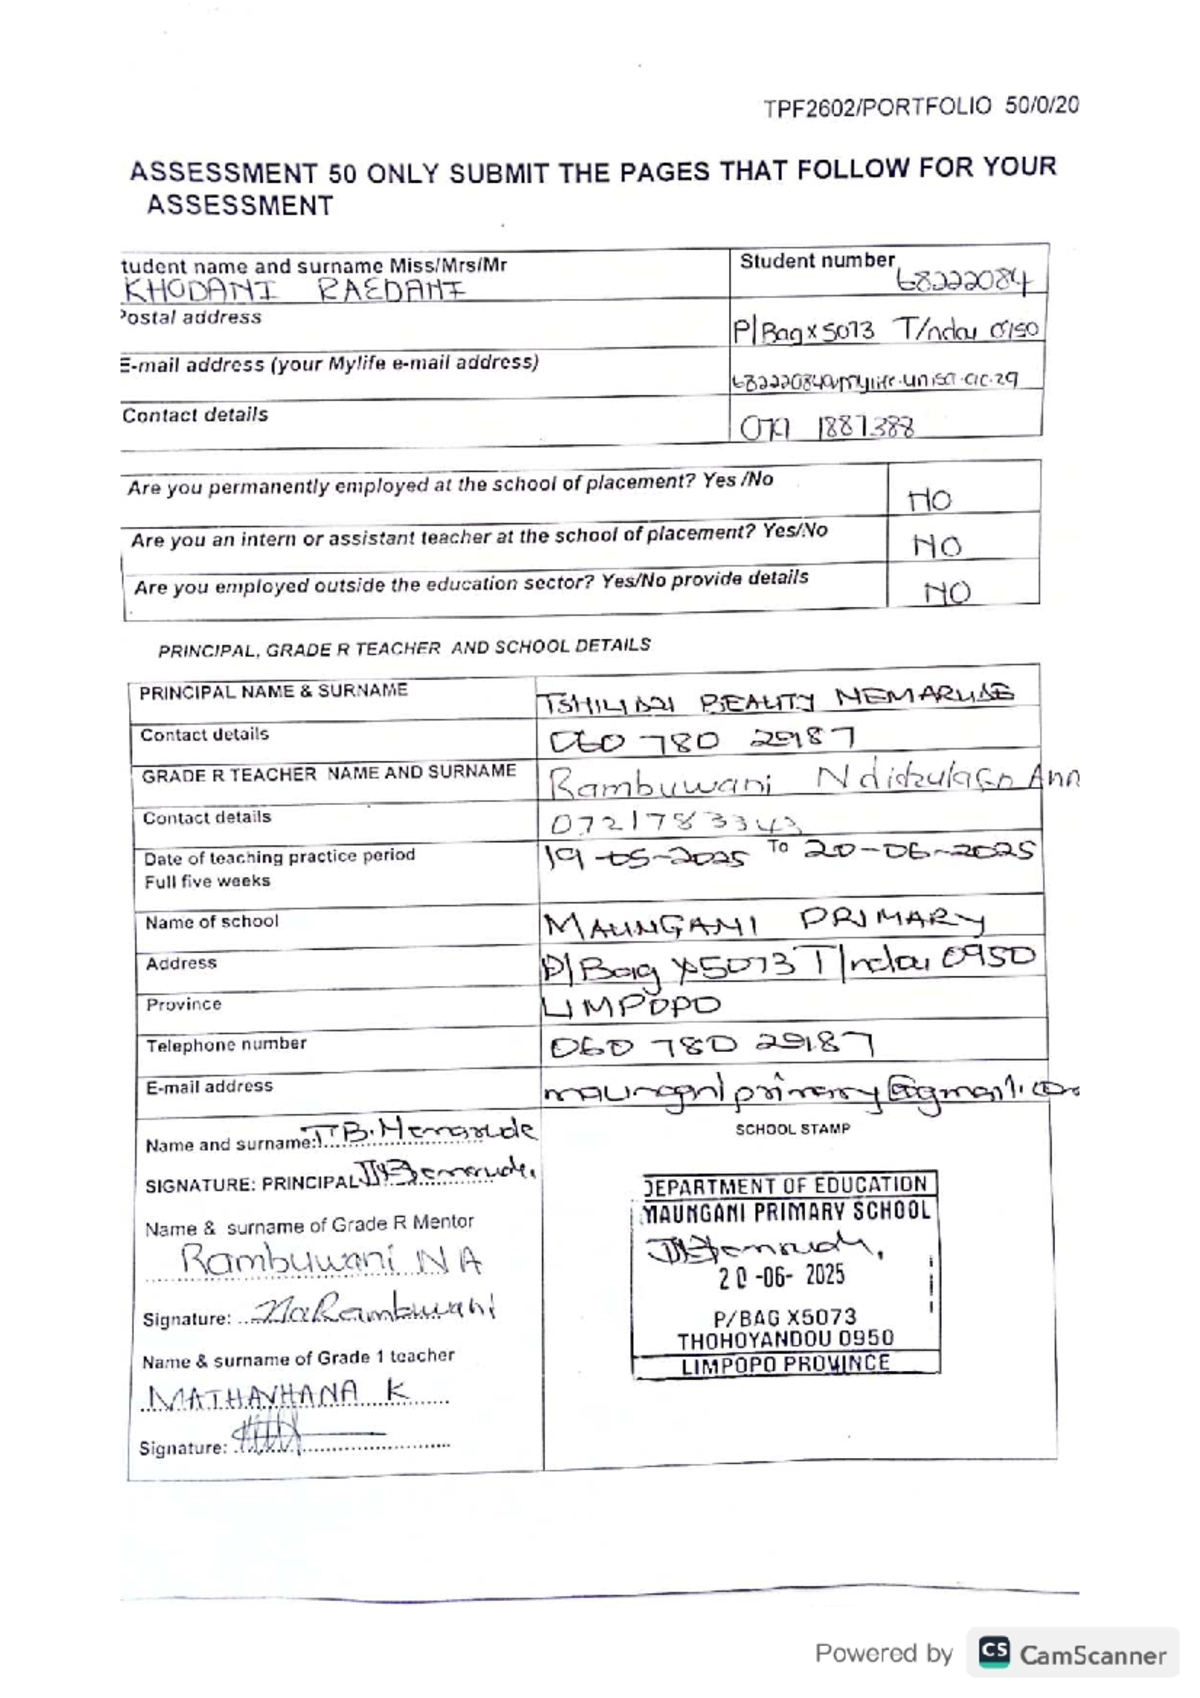 TPF2602/PORTFOLIO 50/0/20
ASSESSMENT 50 ONLY SUBMIT THE PAGES THAT FOLLOW FOR YOUR
ASSESSMENT
tudent name and surname Miss/Mrs/Mr
KHODANI RAEDANI
Student number
68222084
Postal address
P/Bag x 5073 T/ndou 0950
E-mail address (your Mylife e-mail address)
68222084@mylife.unisa.ac.za
Contact details
1887388
Are you permanently employed at the school of placement? Yes /No
NO
Are you an intern or assistant teacher at the school of placement? Yes/No
NO
Are you employed outside the education sector? Yes/No provide details
NO
PRINCIPAL, GRADE R TEACHER AND SCHOOL DETAILS
PRINCIPAL NAME & SURNAME
BEAUTY NEMARUDE
Contact details
060 780 29187
GRADE R TEACHER NAME AND SURNAME
Rambuwani Ann
Contact details
0721783343
Date of teaching practice period
Full five weeks
19-05-2025 TO 20-06-2025
Name of school
MAUNGANI PRIMARY
Address
P/Bag X5073 T/ndou 0950
Province
LIMPOPO
Telephone number
060 780 29187
E-mail address
maunganiprimary@gmail.com
Name and surname: T B. Nemarude
SCHOOL STAMP
SIGNATURE: PRINCIPAL
Name & surname of Grade R Mentor
Rambuwani N A
Signature: NARambuwani
Name & surname of Grade 1 teacher
MATHAVHANA K
Signature:
DEPARTMENT OF EDUCATION
MAUNGANI PRIMARY SCHOOL
20 -06- 2025
P/BAG X5073
THOHOYANDOU 0950
LIMPOPO PROVINCE
Powered by CS CamScanner